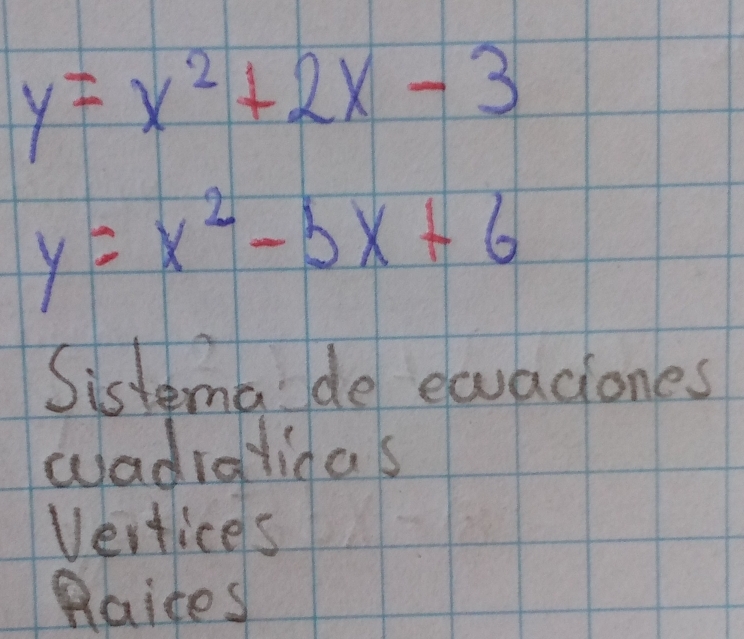 y = x² + 2x - 3
y = x² - 5x + 6
Sistema de ecuaciones
cuadraticas
Vertices
Raices